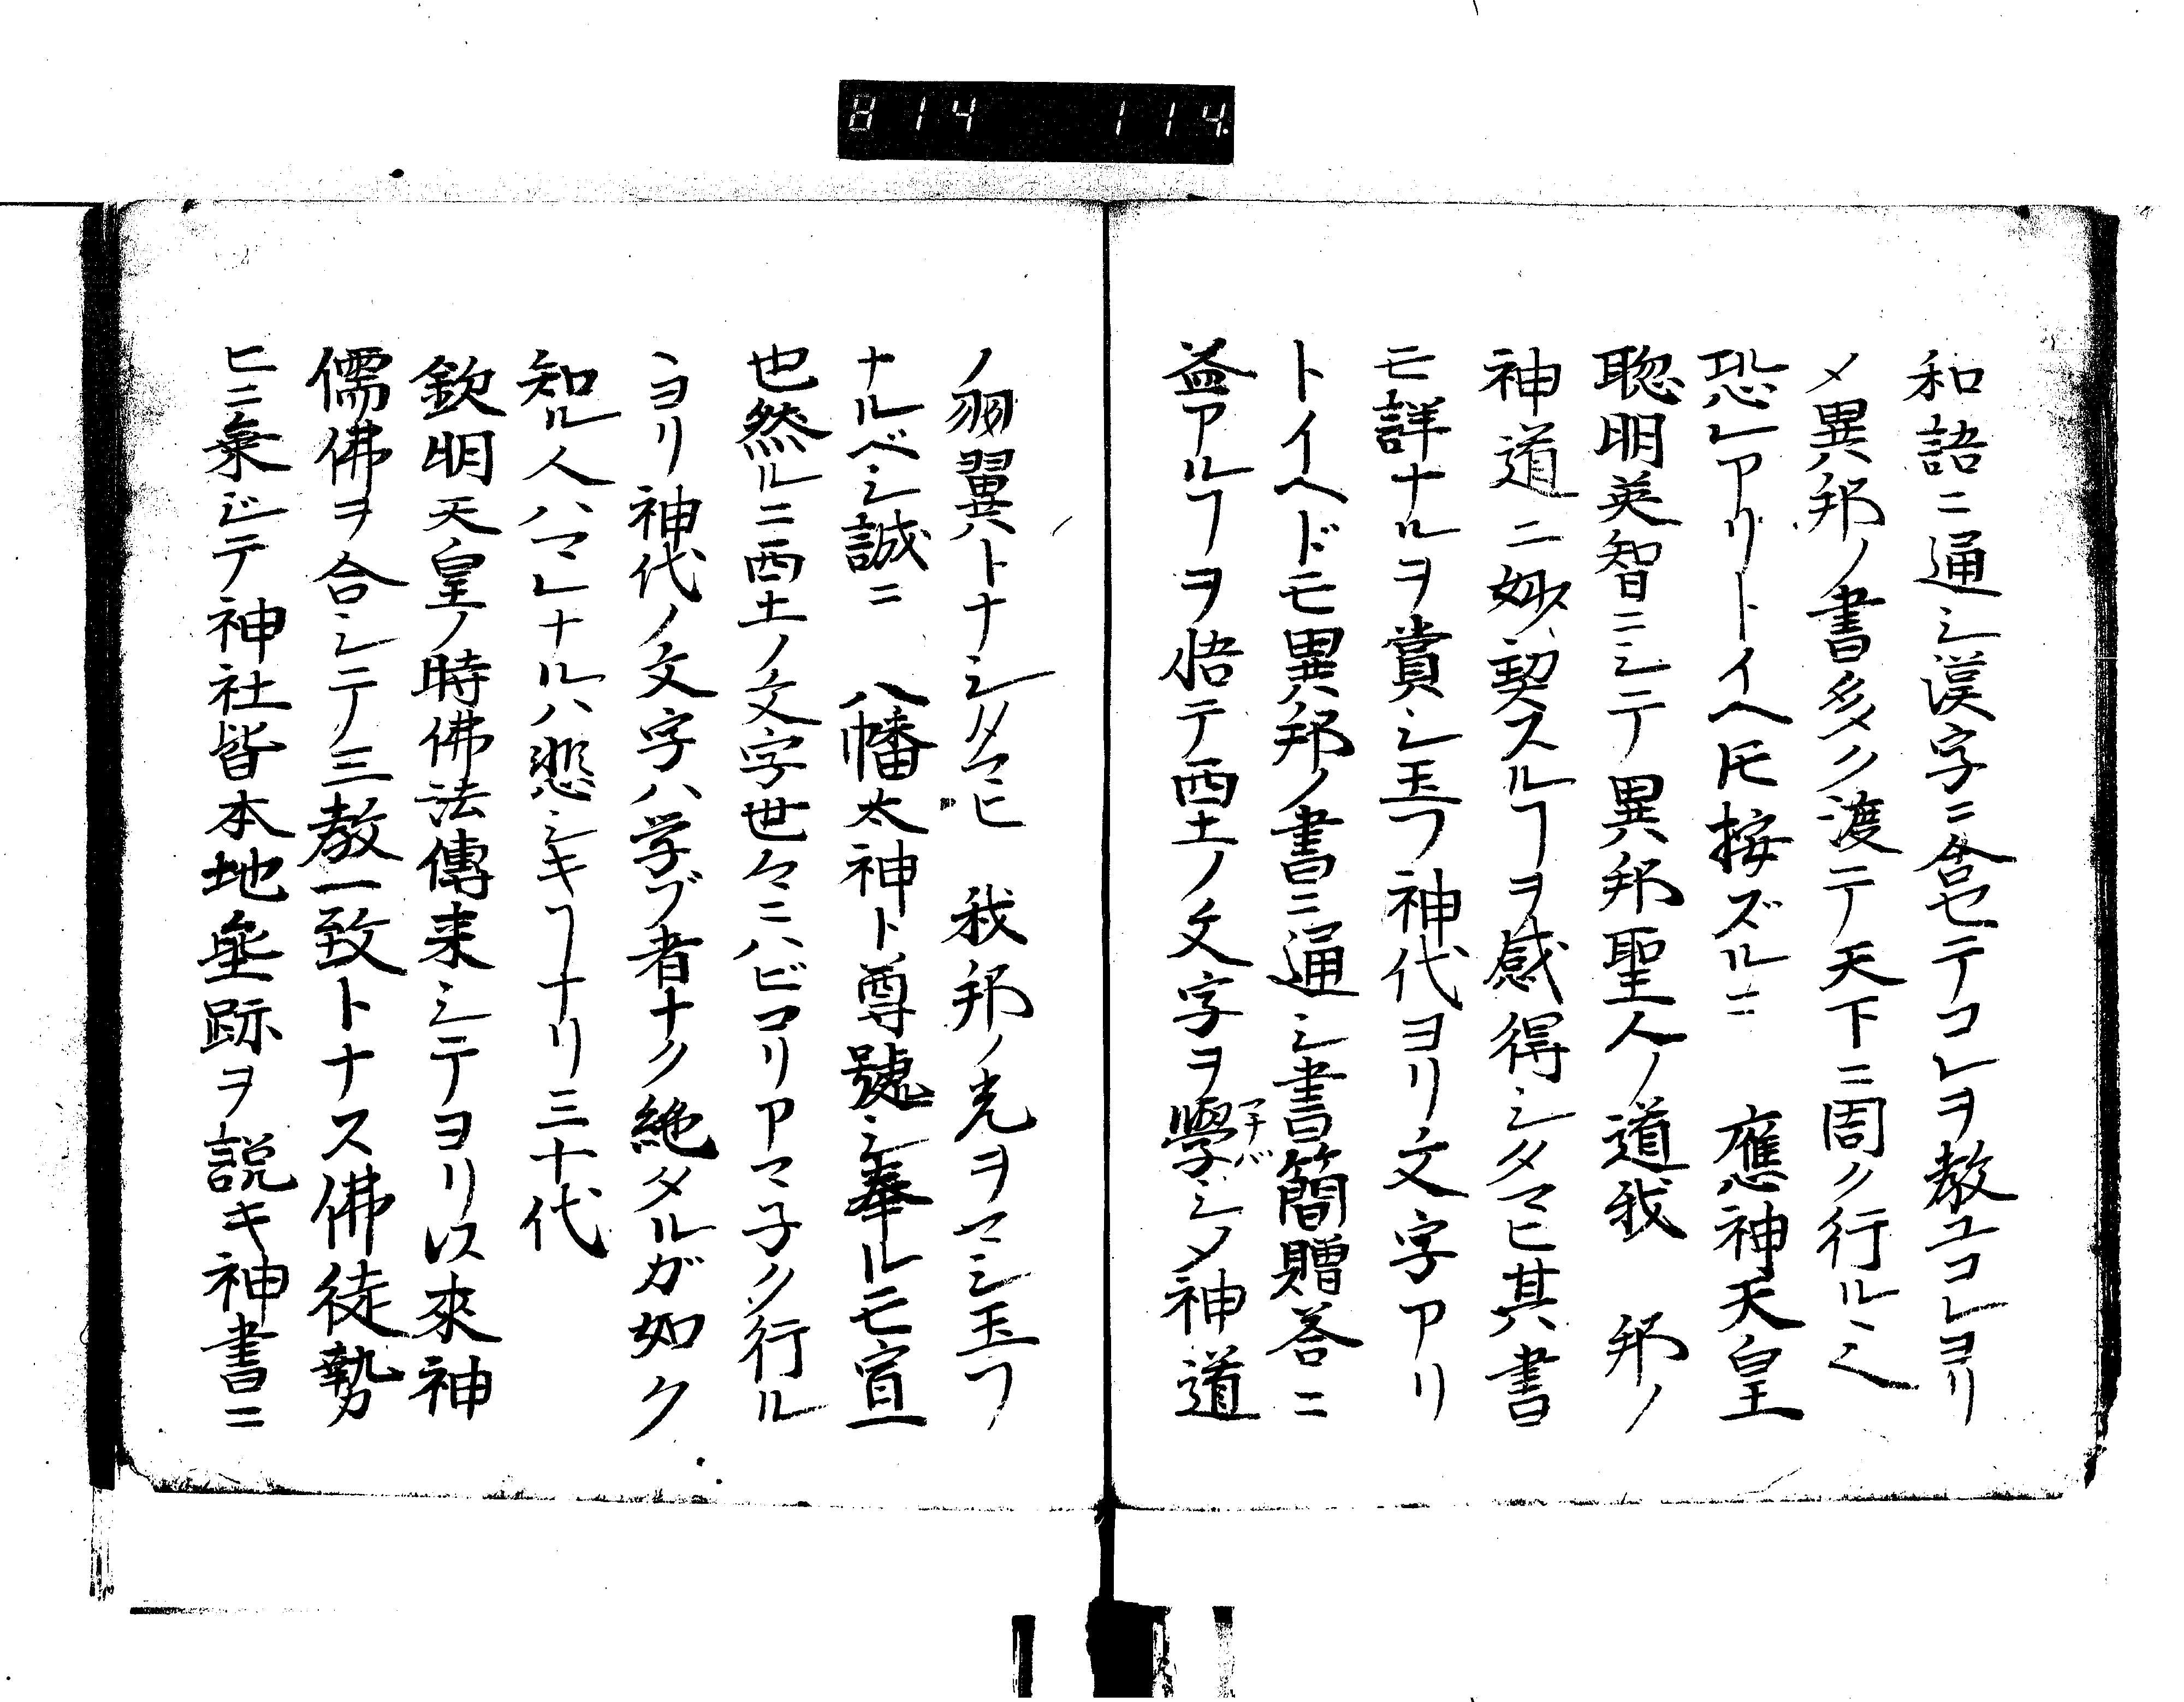 814 114
和語ニ通シ漢字ニ含セテコレヲ教ユコレヨリ
メ異邦ノ書多ク渡テ天下ニ周ク行ルヽ
恐レアリトイヘ𪜈按ズルニ 應神天皇
聡明英智ニシテ異邦聖人ノ道我 邦ノ
神道ニ妙契スルヿヲ感得シタマヒ其書
モ詳ナルヲ賞シ玉フ神代ヨリ文字アリ
トイヘドモ異邦ノ書ニ通シ書簡贈答ニ
益アルヿヲ悟テ西土ノ文字ヲ學シメ神道
ノ羽翼トナシタマヒ 我 邦ノ光ヲマシ玉フ
ナルベシ誠ニ 八幡太神ト尊號シ奉ルモ宜
也然ルニ西土ノ文字世々ニハビコリアマ子ク行ル
ヽヨリ神代ノ文字ハ学ブ者ナク絶タルガ如ク
知ル人ハマレナルハ悲シキヿナリ三十代
欽明天皇ノ時佛法傳来シテヨリ以來神
儒佛ヲ合シテ三教一致トナス佛徒勢
ヒニ乗ジテ神社皆本地垂跡ヲ説キ神書ニ